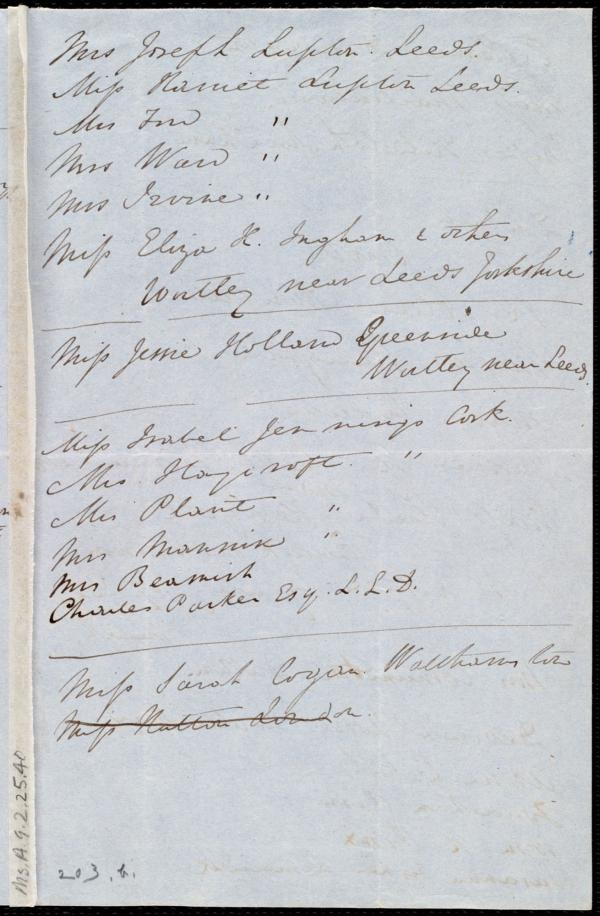 Mrs Joseph Lupton. Leeds.
Miss Harriet Lupton Leeds.
Mrs "
Mrs Ward "
Mrs Irvine "
Miss Eliza H. Ingham & others
Wortley near Leeds Yorkshire
Miss Jessie Holland Greenside
Wortley near Leeds
Miss Isabel Jennings Cork.
Mrs Haycroft. "
Mrs Plant "
Mrs Mannix "
Mrs Beamish
Charles Parker Esq. L.L.D.
Miss Sarah Cogan. Walthamstow
Miss Hutton London.
203.b.
Ms.A.9.2.25.40